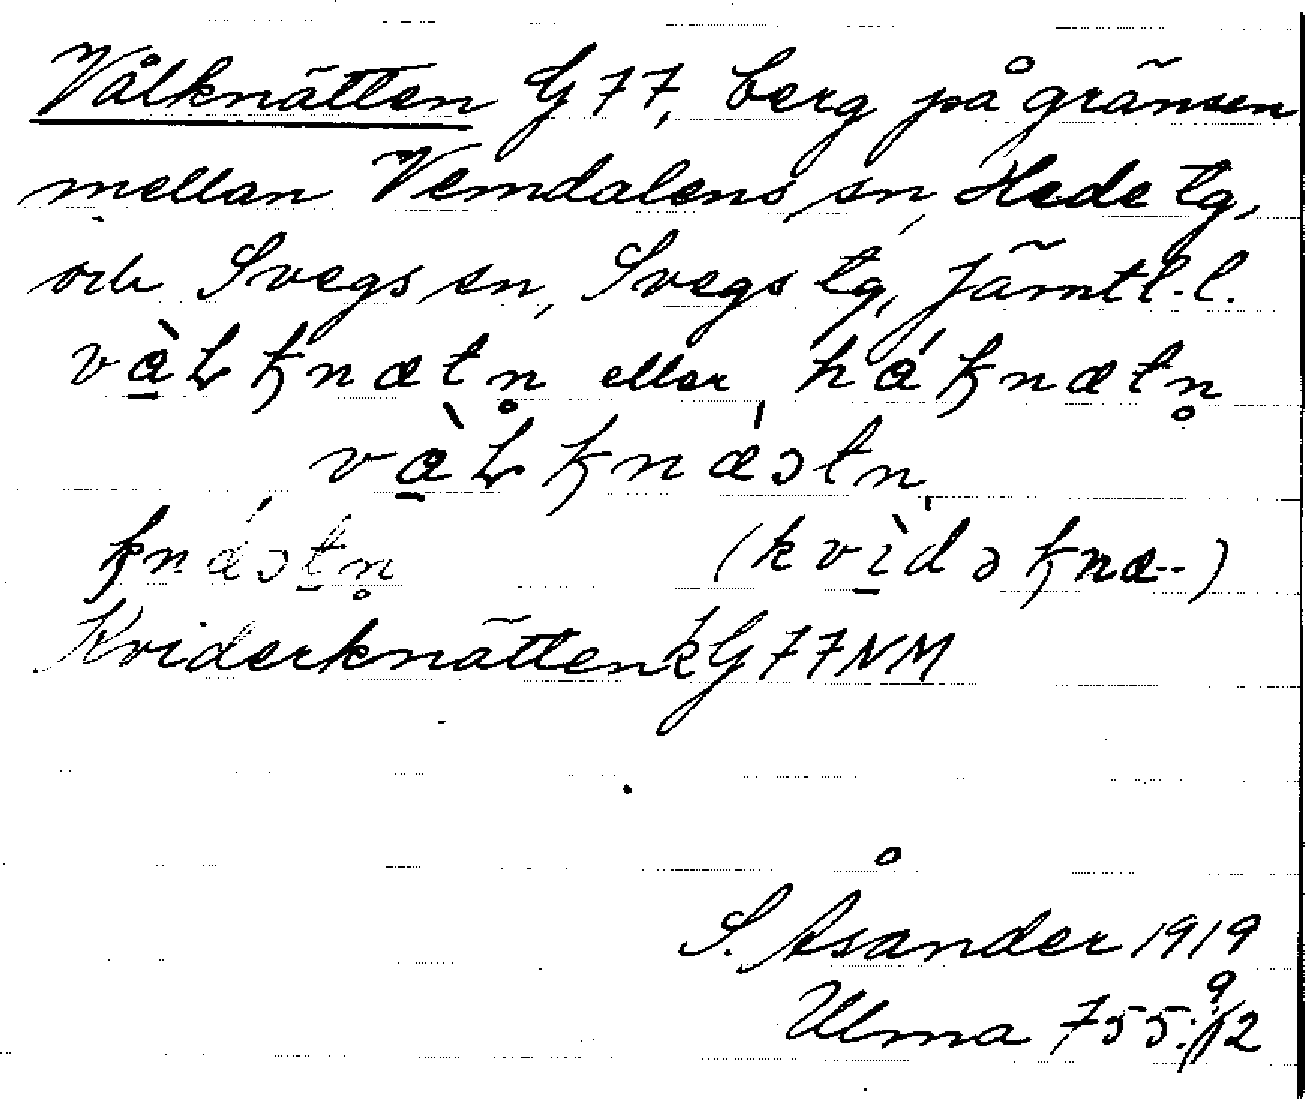 Vålknätten G 77, berg på gränsen
mellan Vemdalens sn, Hede tg,
och Svegs sn, Svegs tg, Jämtl. l.
và̱ꞎknætn̥ eller háknætn̥
và̱ꞎknǽətn̥
knǽət̲n̥ (kvì̱dəknæ--)
Kviderknätten k G 77 NM
S. Åsander 1919
Ulma 755:9/12